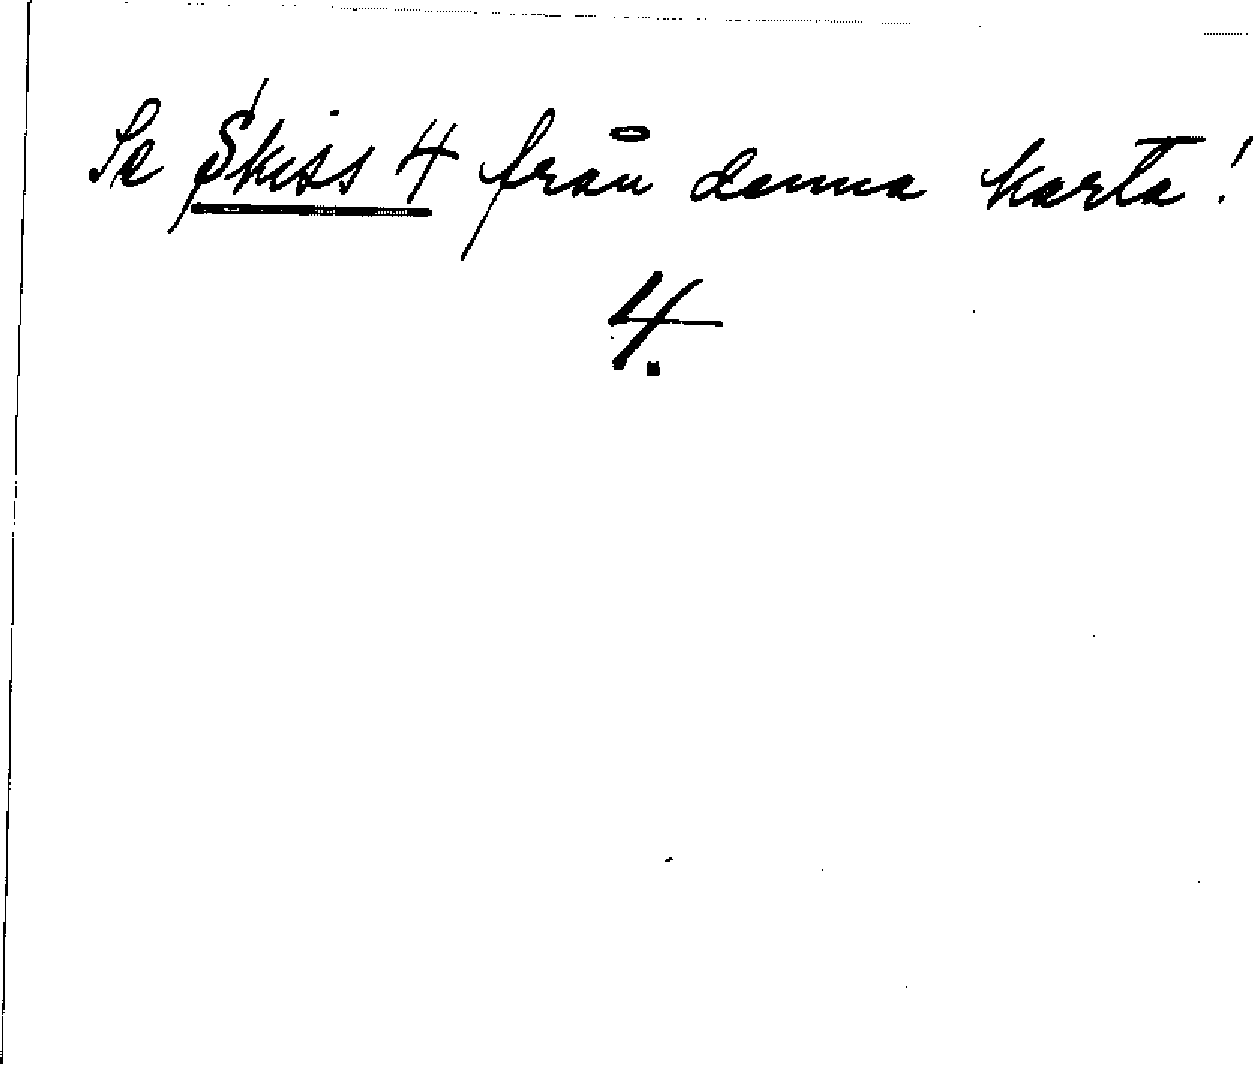 Se Skiss 4 från denna karta!
4.